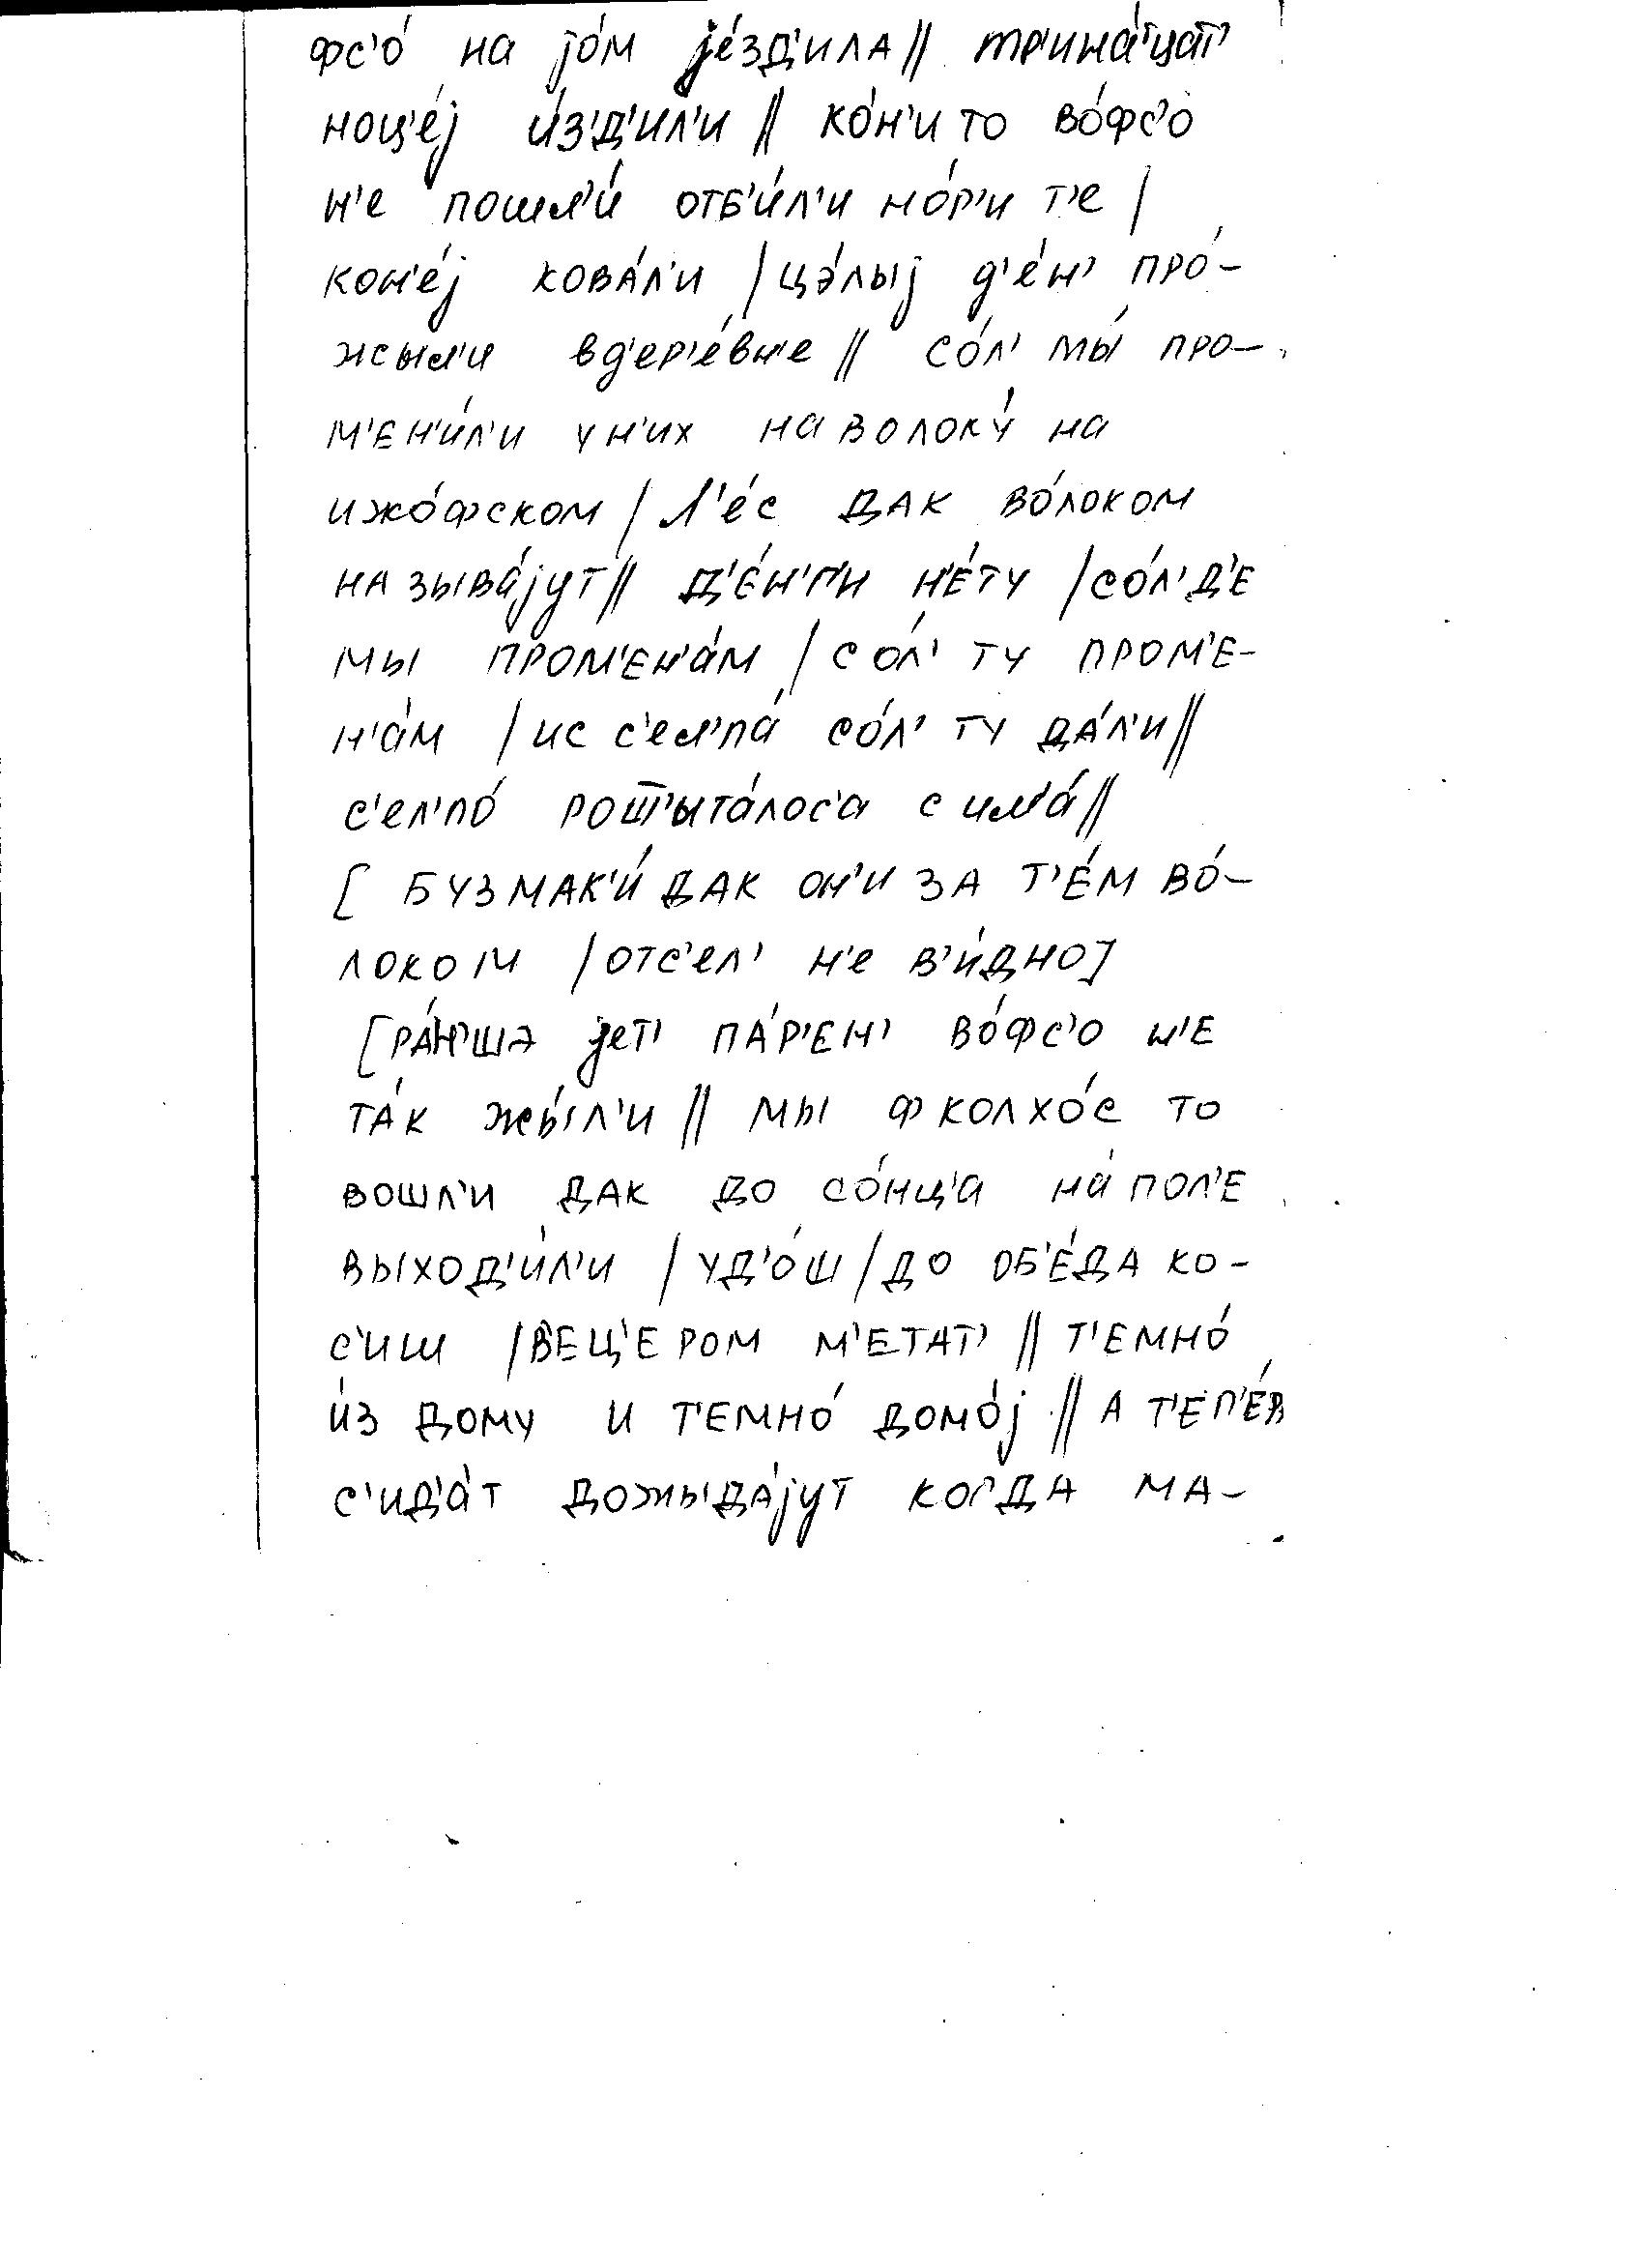 фс'о́ на jо́м jе́зд'ила // тр'ина́ццат'
ноц'е́j и́з'д'ил'и // ко́н'и то во́фс'о
н'е пошл'и́ отб'и́л'и но́г'и т'е /
кон'е́j кова́л'и / цэ́лыj д'е́н' про́-
жыл'и вд'ер'е́вн'е // со́л' мы́ про-
м'ен'и́л'и ун'их на волоку́ на
ижо́фском / л'е́с дак во́локом
называ́jут // д'е́н'г'и н'е́ту / со́л' д'е
мы пром'ен'а́м / со́л' ту пром'е-
н'а́м / ис с'ел'па́ со́л' ту да́л'и //
с'ел'по́ рошшыта́лос'а с им'а́ //
[ Бузмак'и́ дак он'и за т'е́м во́-
локом / отс'ел' н'е в'и́дно]
[ра́н'шэ jет' па́р'ен' во́фс'о н'е
та́к жы́л'и // мы ф колхо́с то
вошл'и дак до со́нц'а на́ пол'е
выход'и́л'и / уд'о́ш / до об'е́да ко-
с'иш / в'ец'ером м'етат' // т'емно́
и́з дому и т'емно́ домо́j // а т'еп'е́р
с'ид'а́т дожыда́jут когда ма-